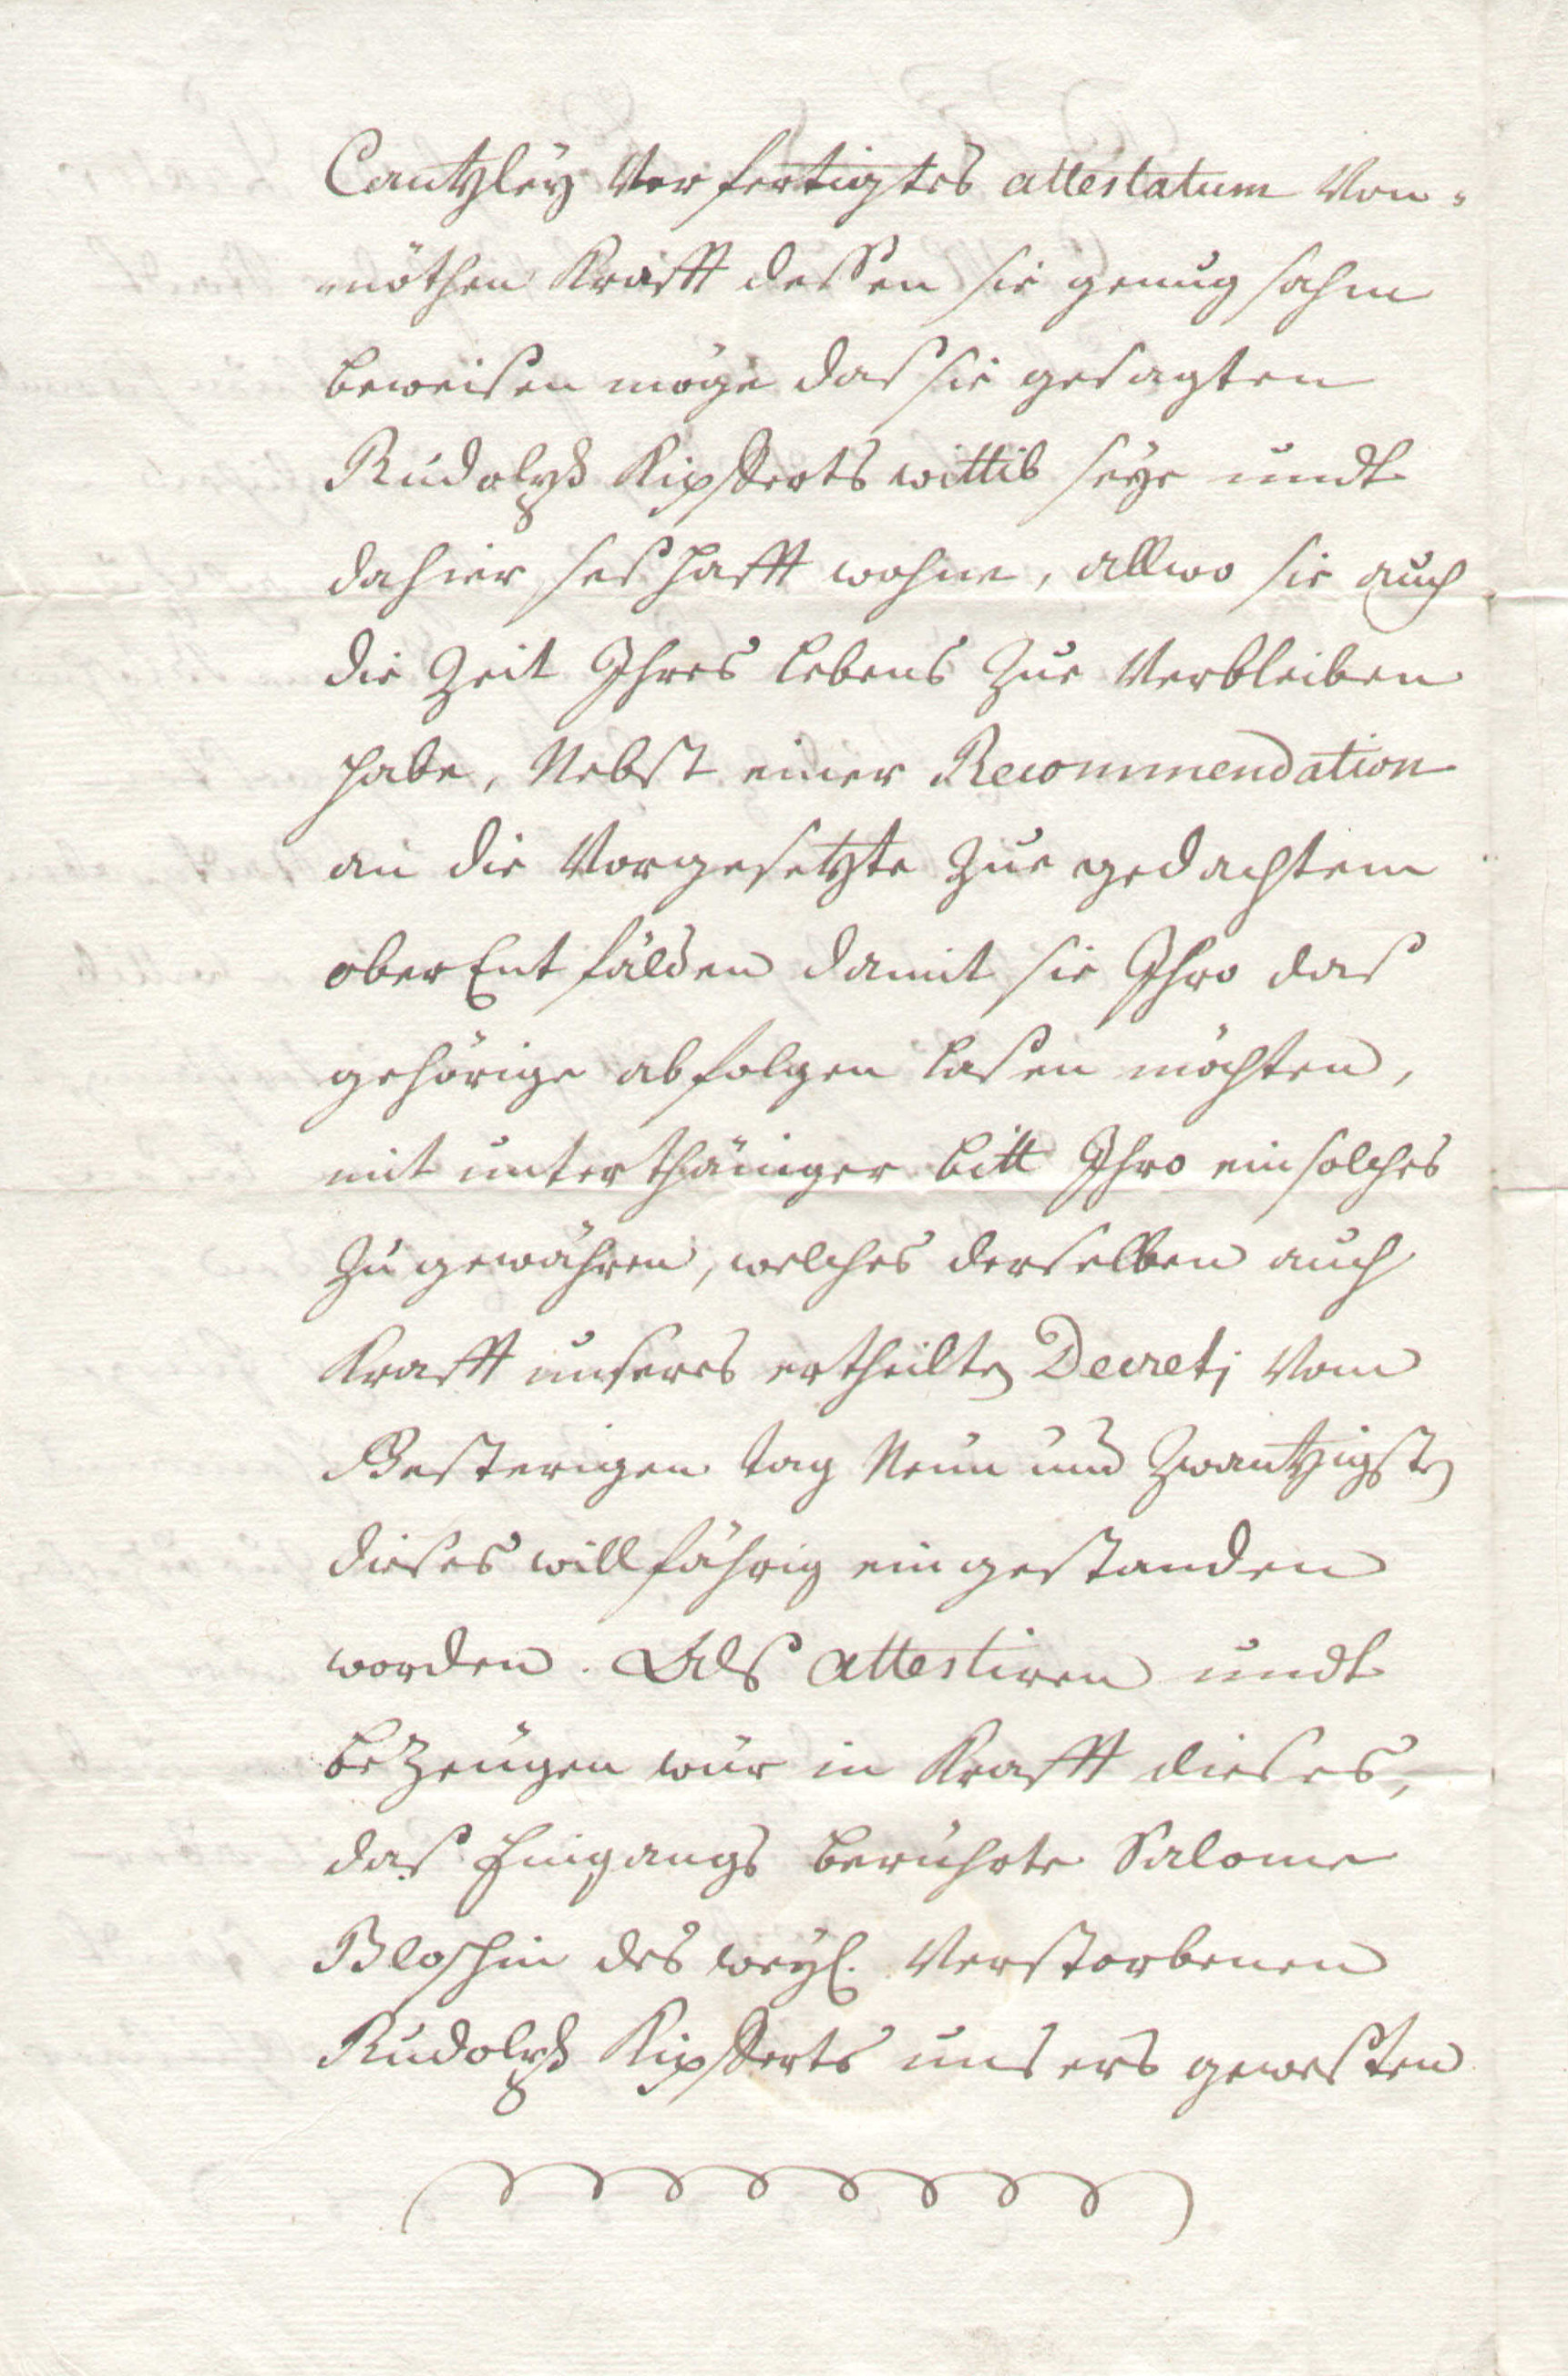 Cantzleÿ Verfertigtes attestatum Von=
nöthen Krafft dessen sie genugsahm
beweisen möge das sie gesagten
Rudolph Kipfferts wittib seÿe undt
dahier seshafft wohne, allwo sie auch
die Zeit Ihres Lebens Zue Verbleiben
habe, Nebst einer Recommendation
an die Vorgesetzte Zue gedachtem
ober Entfälden damit sie Ihro das
gehörige abfolgen lasen möchten,
mit unterthäniger bitt Ihro ein solches
Zu gewähren, welches derselben auch
Krafft unseres ertheilten Decreti Vom
Gesterigen tag Neun und Zwantzigsten
dieses willfährig eingestanden
worden. Als attestiren undt
beZeügen wür in Krafft dieses,
das Eingangs berührte Salome
Bloschin des weÿl. Verstorbenen
Rudolph Kipfferts unsers gewesten